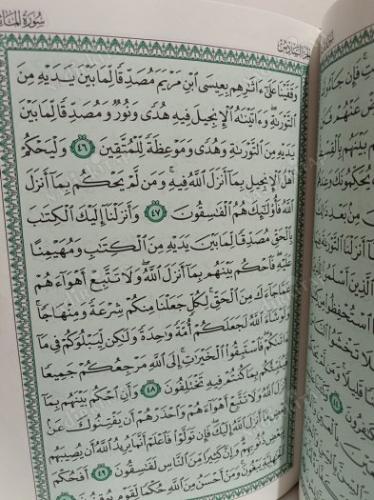 سُورَةُ المَائ
وَقَفَّيْنَا عَلَىٰٓ ءَاثَٰرِهِم بِعِيسَى ٱبْنِ مَرْيَمَ مُصَدِّقًا لِّمَا بَيْنَ يَدَيْهِ مِنَ
ٱلتَّوْرَىٰةِ وَءَاتَيْنَٰهُ ٱلْإِنجِيلَ فِيهِ هُدًى وَنُورٌ وَمُصَدِّقًا لِّمَا بَيْنَ
يَدَيْهِ مِنَ ٱلتَّوْرَىٰةِ وَهُدًى وَمَوْعِظَةً لِّلْمُتَّقِينَ ٤٦ وَلْيَحْكُمْ
أَهْلُ ٱلْإِنجِيلِ بِمَآ أَنزَلَ ٱللَّهُ فِيهِ وَمَن لَّمْ يَحْكُم بِمَآ أَنزَلَ
ٱللَّهُ فَأُو۟لَٰٓئِكَ هُمُ ٱلْفَٰسِقُونَ ٤٧ وَأَنزَلْنَآ إِلَيْكَ ٱلْكِتَٰبَ
بِٱلْحَقِّ مُصَدِّقًا لِّمَا بَيْنَ يَدَيْهِ مِنَ ٱلْكِتَٰبِ وَمُهَيْمِنًا
عَلَيْهِ فَٱحْكُم بَيْنَهُم بِمَآ أَنزَلَ ٱللَّهُ وَلَا تَتَّبِعْ أَهْوَآءَهُمْ
عَمَّا جَآءَكَ مِنَ ٱلْحَقِّ لِكُلٍّ جَعَلْنَا مِنكُمْ شِرْعَةً وَمِنْهَاجًا
وَلَوْ شَآءَ ٱللَّهُ لَجَعَلَكُمْ أُمَّةً وَٰحِدَةً وَلَٰكِن لِّيَبْلُوَكُمْ فِى مَآ
ءَاتَىٰكُمْ فَٱسْتَبِقُوا۟ ٱلْخَيْرَٰتِ إِلَى ٱللَّهِ مَرْجِعُكُمْ جَمِيعًا
فَيُنَبِّئُكُم بِمَا كُنتُمْ فِيهِ تَخْتَلِفُونَ ٤٨ وَأَنِ ٱحْكُم بَيْنَهُم بِمَآ
أَنزَلَ ٱللَّهُ وَلَا تَتَّبِعْ أَهْوَآءَهُمْ وَٱحْذَرْهُمْ أَن يَفْتِنُوكَ عَنۢ
بَعْضِ مَآ أَنزَلَ ٱللَّهُ إِلَيْكَ فَإِن تَوَلَّوْا۟ فَٱعْلَمْ أَنَّمَا يُرِيدُ ٱللَّهُ أَن يُصِيبَهُم
بِبَعْضِ ذُنُوبِهِمْ وَإِنَّ كَثِيرًا مِّنَ ٱلنَّاسِ لَفَٰسِقُونَ ٤٩ أَفَحُكْمَ
ٱلْجَٰهِلِيَّةِ يَبْغُونَ وَمَنْ أَحْسَنُ مِنَ ٱللَّهِ حُكْمًا لِّقَوْمٍ يُوقِنُونَ